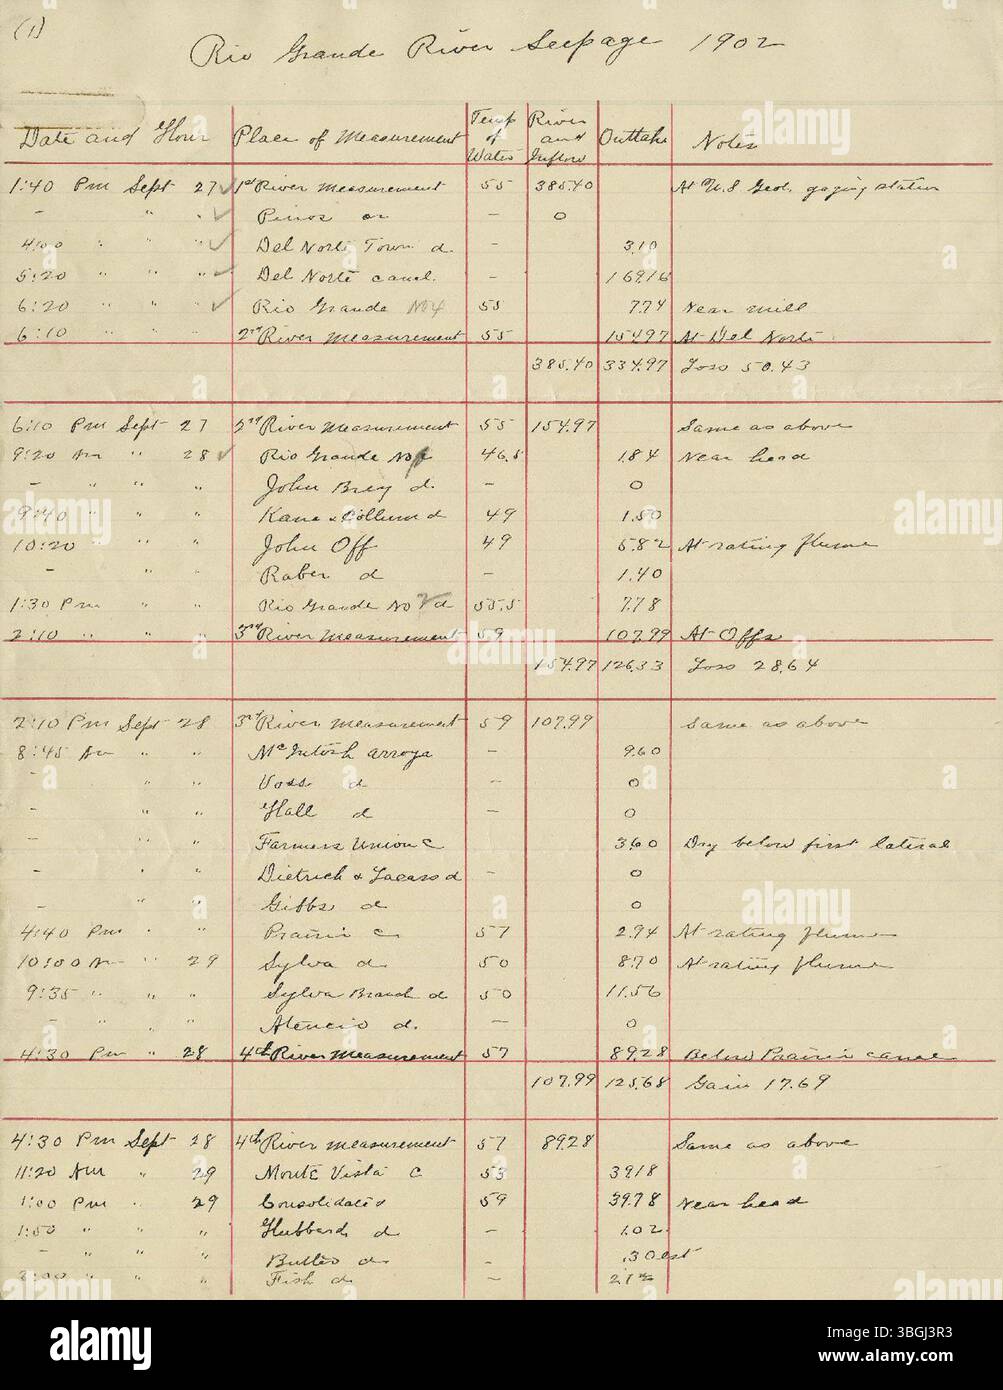 (1)
Rio Grande River Seepage 1902
Date and Hour Place of Measurement Temp of Water River and Inflow Outtake Notes
1:40 Pm Sept 27 1st River Measurement 55 385.40 At U.S Geol. gaging station
- " " Pinos - 0
4:00 " " Del Norte Town d. - 3.10
5:20 " " " Del Norte canal. - 169.16
6:20 " " " Rio Grande No 4 55 7.74 Near mill
6:10 " " " 2nd River Measurement 55 154.97 At Del Norte
385.40 334.97 Loss 50.43
6:10 Pm Sept 27 2nd River Measurement 55 154.97 Same as above
9:20 Am " 28 Rio Grande No 46.5 1.84 Near head
- " " John d. - 0
9:40 " " " Kane & Collum d 49 1.50
10:20 " " " John Off 49 5.82 At rating flume
- " " Raber d - 1.40
1:30 Pm " " Rio Grande No 2 d 55.5 7.78
2:10 " " " 3rd River Measurement 59 107.99 At Offs
154.97 126.33 Loss 28.64
2:10 Pm Sept 28 3rd River Measurement 59 107.99 Same as above
8:45 Am " " McIntosh arroya - 9.60
- " " Voss d - 0
- " " Hall d - 0
- " " Farmers Union C 3.60 Dry below first lateral
- " " Dietrich & d - 0
- " " Gibbs d 0
4:40 Pm " " Prairie C 57 2.94 At rating flume
10:00 Am " 29 Sylva d 50 8.70 At rating flume
9:35 " " " Sylva Branch d 50 11.56
- " " Atencio d. - 0
4:30 Pm " 28 4th River Measurement 57 89.28 Below Prairie canal
107.99 125.68 Gain 17.69
4:30 Pm Sept 28 4th River Measurement 57 89.28 Same as above
11:20 Am " 29 Monte Vista C 53 39.18
1:00 Pm " 29 Consolidated 59 39.78 Near head
1:50 " " " Hubbard d - 1.02
- " " Butler d - .30 est
2:00 " " " Fish d -
alamy
Image ID: 3BGJ3R3
www.alamy.com